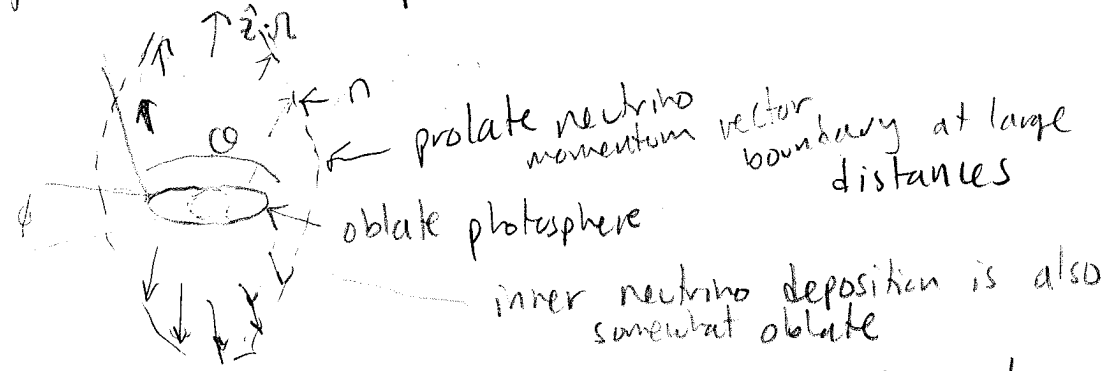 ẑ, Ω
n
prolate neutrino
momentum vector
boundary at large
distances
Θ
φ
oblate photosphere
inner neutrino deposition is also
somewhat oblate